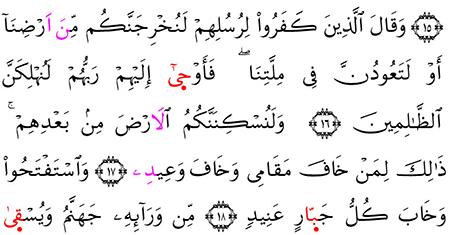 ۝١٥ وَقَالَ اَ۬لذِينَ كَفَرُواْ لِرُسُلِهِمْ لَنُخْرِجَنَّكُم مِّنَ اَرْضِنَآ
أَوْ لَتَعُودُنَّ فِے مِلَّتِنَاۖ فَأَوْح۪يٰٓ إِلَيْهِمْ رَبُّهُمْ لَنُهْلِكَنَّ
اَ۬لظَّٰلِمِينَ ۝١٦ وَلَنُسْكِنَنَّكُمُ اُ۬لَارْضَ مِنۢ بَعْدِهِمْۚ
ذَٰلِكَ لِمَنْ خَافَ مَقَامِے وَخَافَ وَعِيدِۦ ۝١٧ وَاسْتَفْتَحُواْ
وَخَابَ كُلُّ جَبّ۪ارٍ عَنِيدٖ ۝١٨ مِّنْ وَرَآئِهِۦ جَهَنَّمُ وَيُسْق۪يٰ